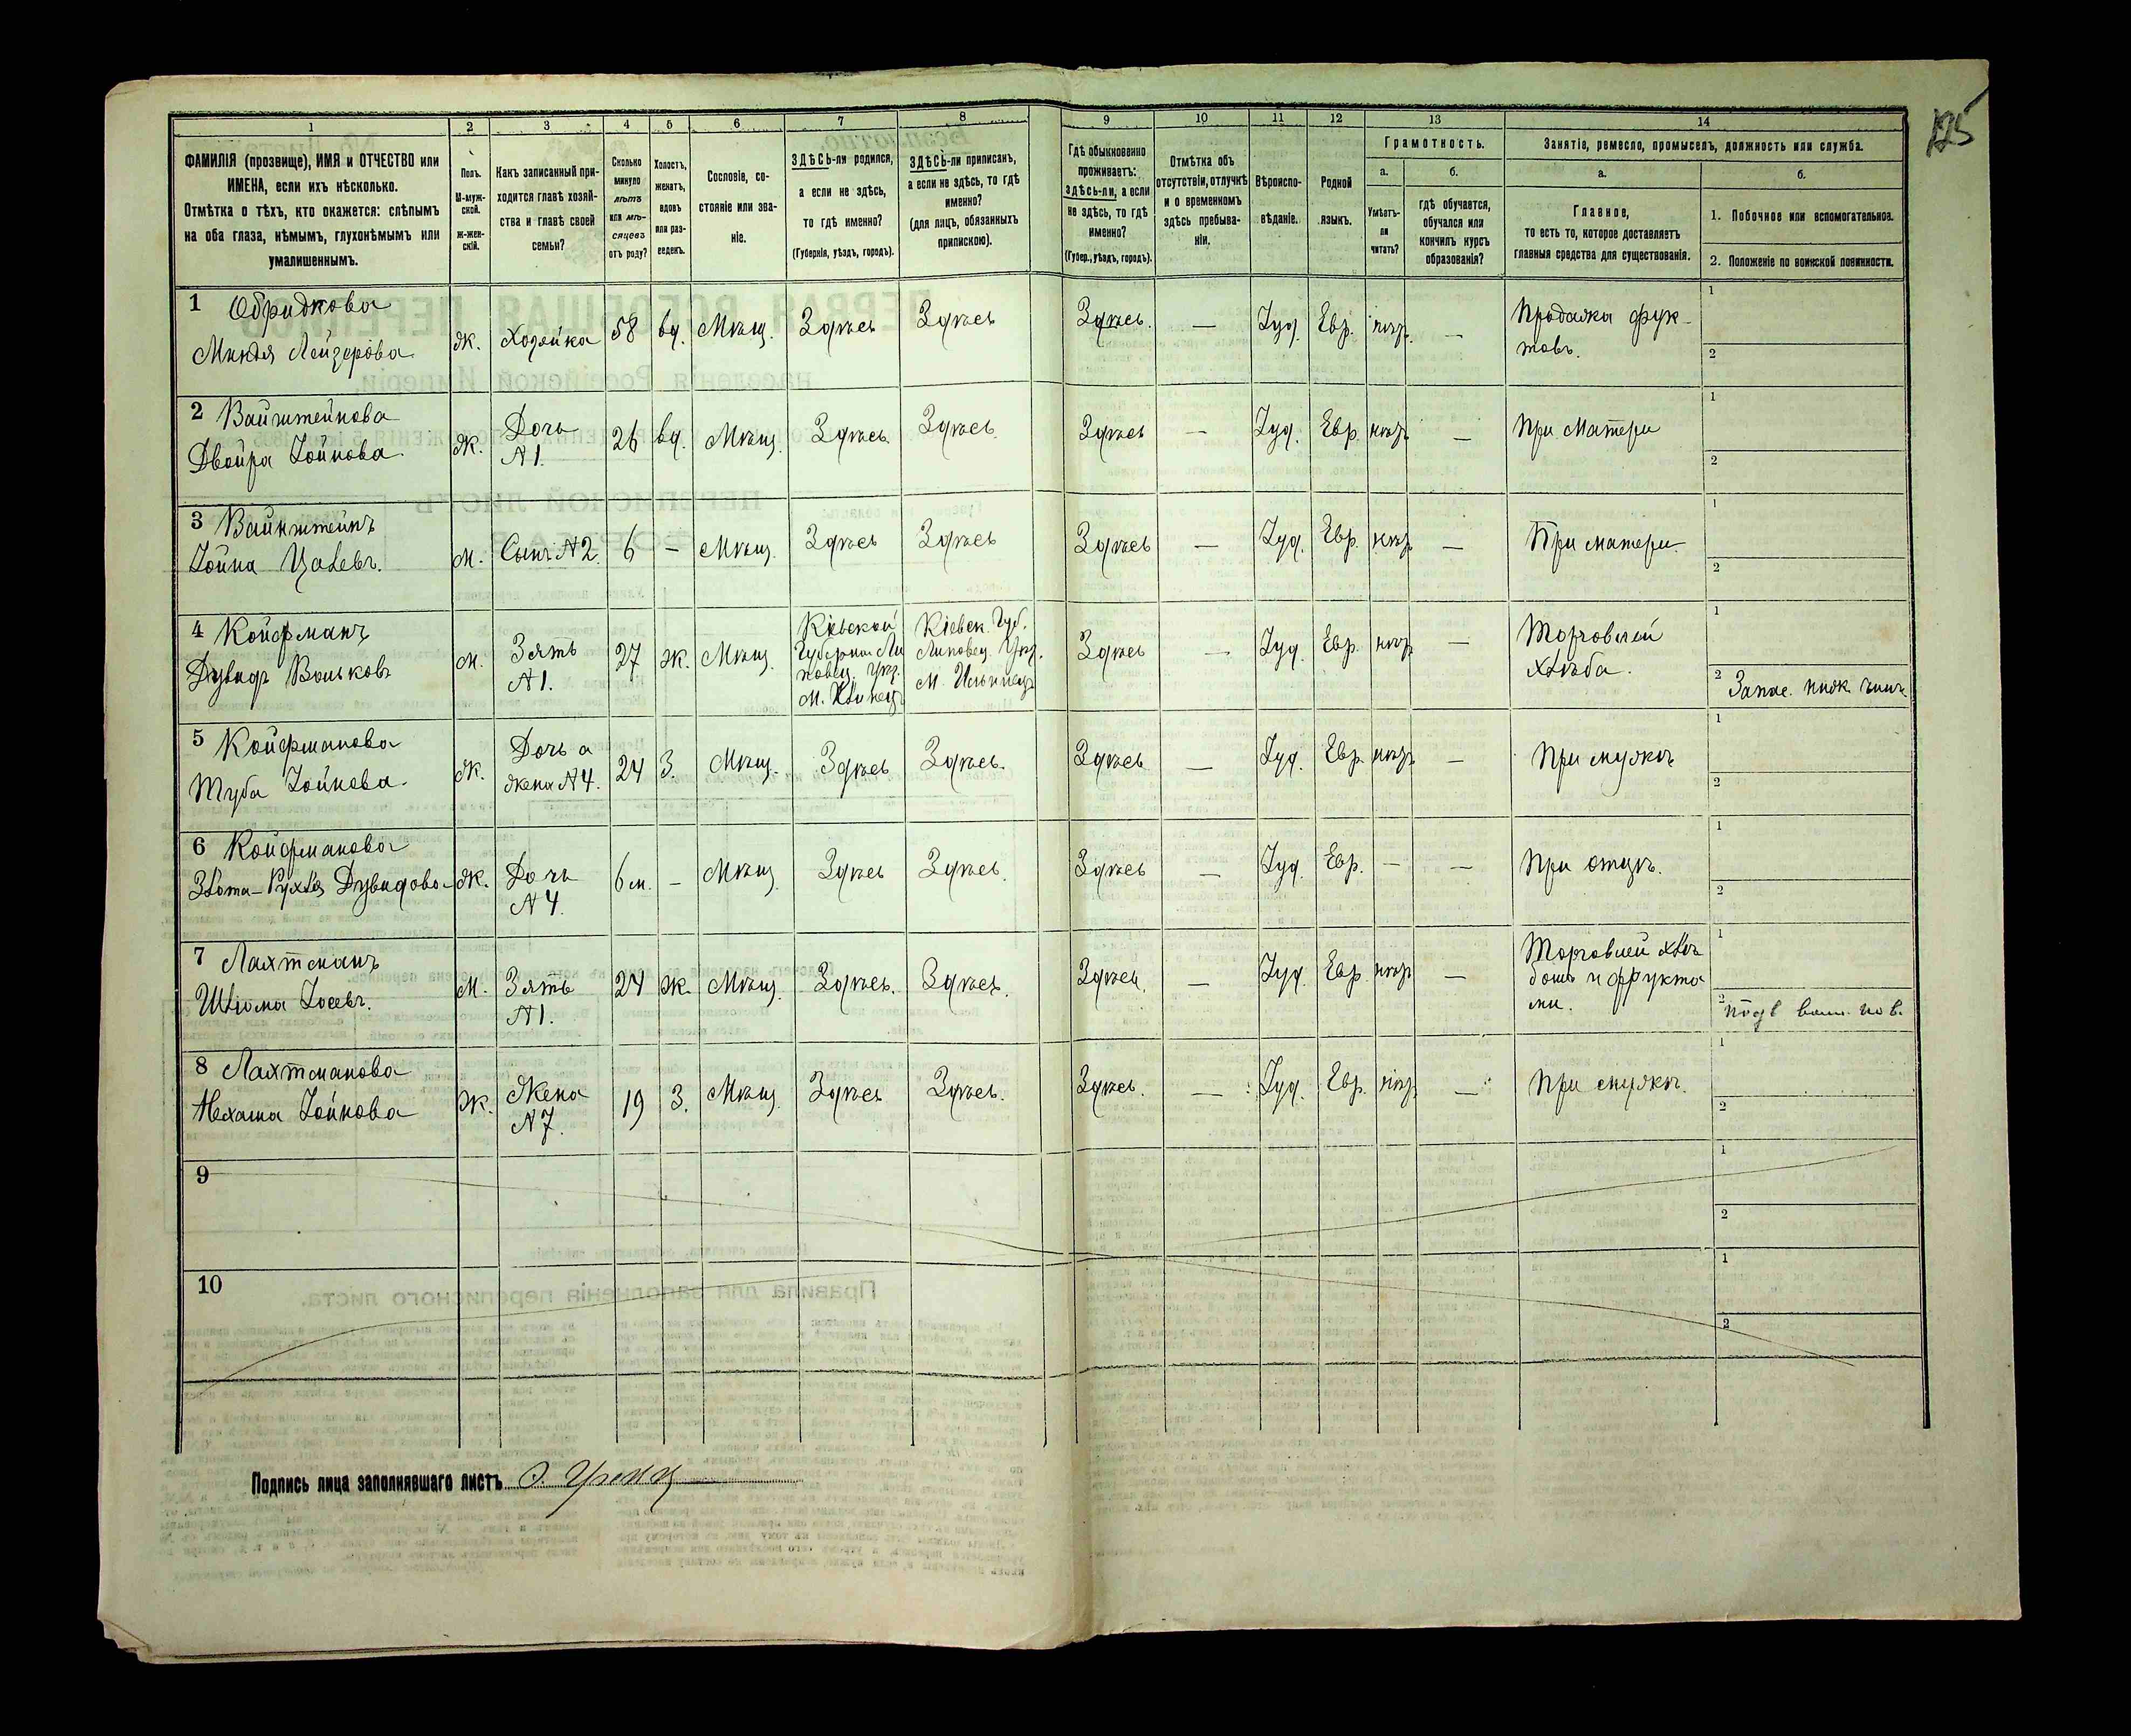 125
1
2
3
4
5
6
7
8
9
10
11
12
13
14
ФАМИЛІЯ (прозвище), ИМЯ и ОТЧЕСТВО или
ИМЕНА, если ихъ нѣсколько.
Отмѣтка о тѣхъ, кто окажется: слѣпымъ
на оба глаза, нѣмымъ, глухонѣмымъ или
умалишеннымъ.
Полъ.
М-муж-
ской.
Ж-жен-
скій.
Какъ записанный при-
ходится главѣ хозяй-
ства и главѣ своей
семьи?
Сколько
минуло
лѣтъ
или мѣ-
сяцевъ
отъ роду?
Холостъ,
женатъ,
вдовъ
или раз-
веденъ.
Сословіе, со-
стояніе или зва-
ніе.
ЗДѢСЬ-ли родился,
а если не здѣсь,
то гдѣ именно?
(Губернія, уѣздъ, городъ).
ЗДѢСЬ-ли приписанъ,
а если не здѣсь, то гдѣ
именно?
(для лицъ, обязанныхъ
припискою).
Гдѣ обыкновенно
проживаетъ:
здѣсь-ли, а если
не здѣсь, то гдѣ
именно?
(Губер., уѣздъ, городъ).
Отмѣтка объ
отсутствіи, отлучкѣ
и о временномъ
здѣсь пребыва-
ніи.
Вѣроиспо-
вѣданіе.
Родной
языкъ.
Грамотность.
а.
Умѣетъ-
ли
читать?
б.
гдѣ обучается,
обучался или
кончилъ курсъ
образованія?
Занятіе, ремесло, промыселъ, должность или служба.
а.
Главное,
то есть то, которое доставляетъ
главныя средства для существованія.
б.
1. Побочное или вспомогательное.
2. Положеніе по воинской повинности.
1 Обридкова
Миндя Лейзерова
ж.
Хозяйка
58
вд.
Мѣщ.
Здѣсь
Здѣсь
Здѣсь.
—
Іуд.
Евр.
нѣтъ
—
Продажа фук-
товъ.
1
2
2 Вайнштейнова
Двойра Іойнова
ж.
Дочь
№1.
26
вд.
Мѣщ.
Здѣсь
Здѣсь
Здѣсь
—
Іуд.
Евр.
нѣтъ
—
При матери
1
2
3 Вайнштейнъ
Іойна Цалевъ.
м.
Сынъ №2.
6
—
Мѣщ.
Здѣсь
Здѣсь
Здѣсь
—
Іуд.
Евр.
нѣтъ
—
При матери
1
2
4 Койфманъ
Дувидъ Вольковъ
м.
Зять
№1.
27
ж.
Мѣщ.
Кіевской
Губерніи Ли
повец. Уѣз.
Кіевск. Губ.
Липовец. Уѣз.
м. Ильинецъ
Здѣсь
—
Іуд.
Евр.
нѣтъ
—
Торговлей
хлѣба.
1
2 Запас. ниж. чинъ
5 Койфманова
Туба Іойнова
ж.
Дочь а
жена №4.
24
З.
Мѣщ.
Здѣсь
Здѣсь.
Здѣсь
—
Іуд.
Евр.
нѣтъ
—
При мужѣ
1
2
6 Койфманова
Злота-Рухля Дувидова
ж.
Дочь
№4.
6 м.
—
Мѣщ.
Здѣсь
Здѣсь.
Здѣсь
—
Іуд.
Евр.
—
—
При отцѣ.
1
2
7 Лахтманъ
Шлома Іосевъ.
м.
Зять
№1.
24
ж.
Мѣщ.
Здѣсь.
Здѣсь.
Здѣсь.
—
Іуд.
Евр.
нѣтъ
—
Торговлей хлѣ
бомъ и фрукта
ми.
1
2
8 Лахтманова
Нехама Іойнова
ж.
Жена
№7.
19
З.
Мѣщ.
Здѣсь
Здѣсь.
Здѣсь.
—
Іуд.
Евр.
нѣтъ
—
При мужѣ.
1
2
9
1
2
10
1
2
Подпись лица заполнявшаго листъ